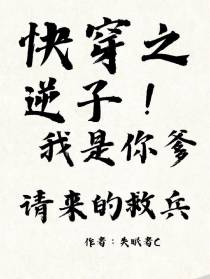 快穿之
逆子！
我是你爹
请来的救兵
作者：失眠者C